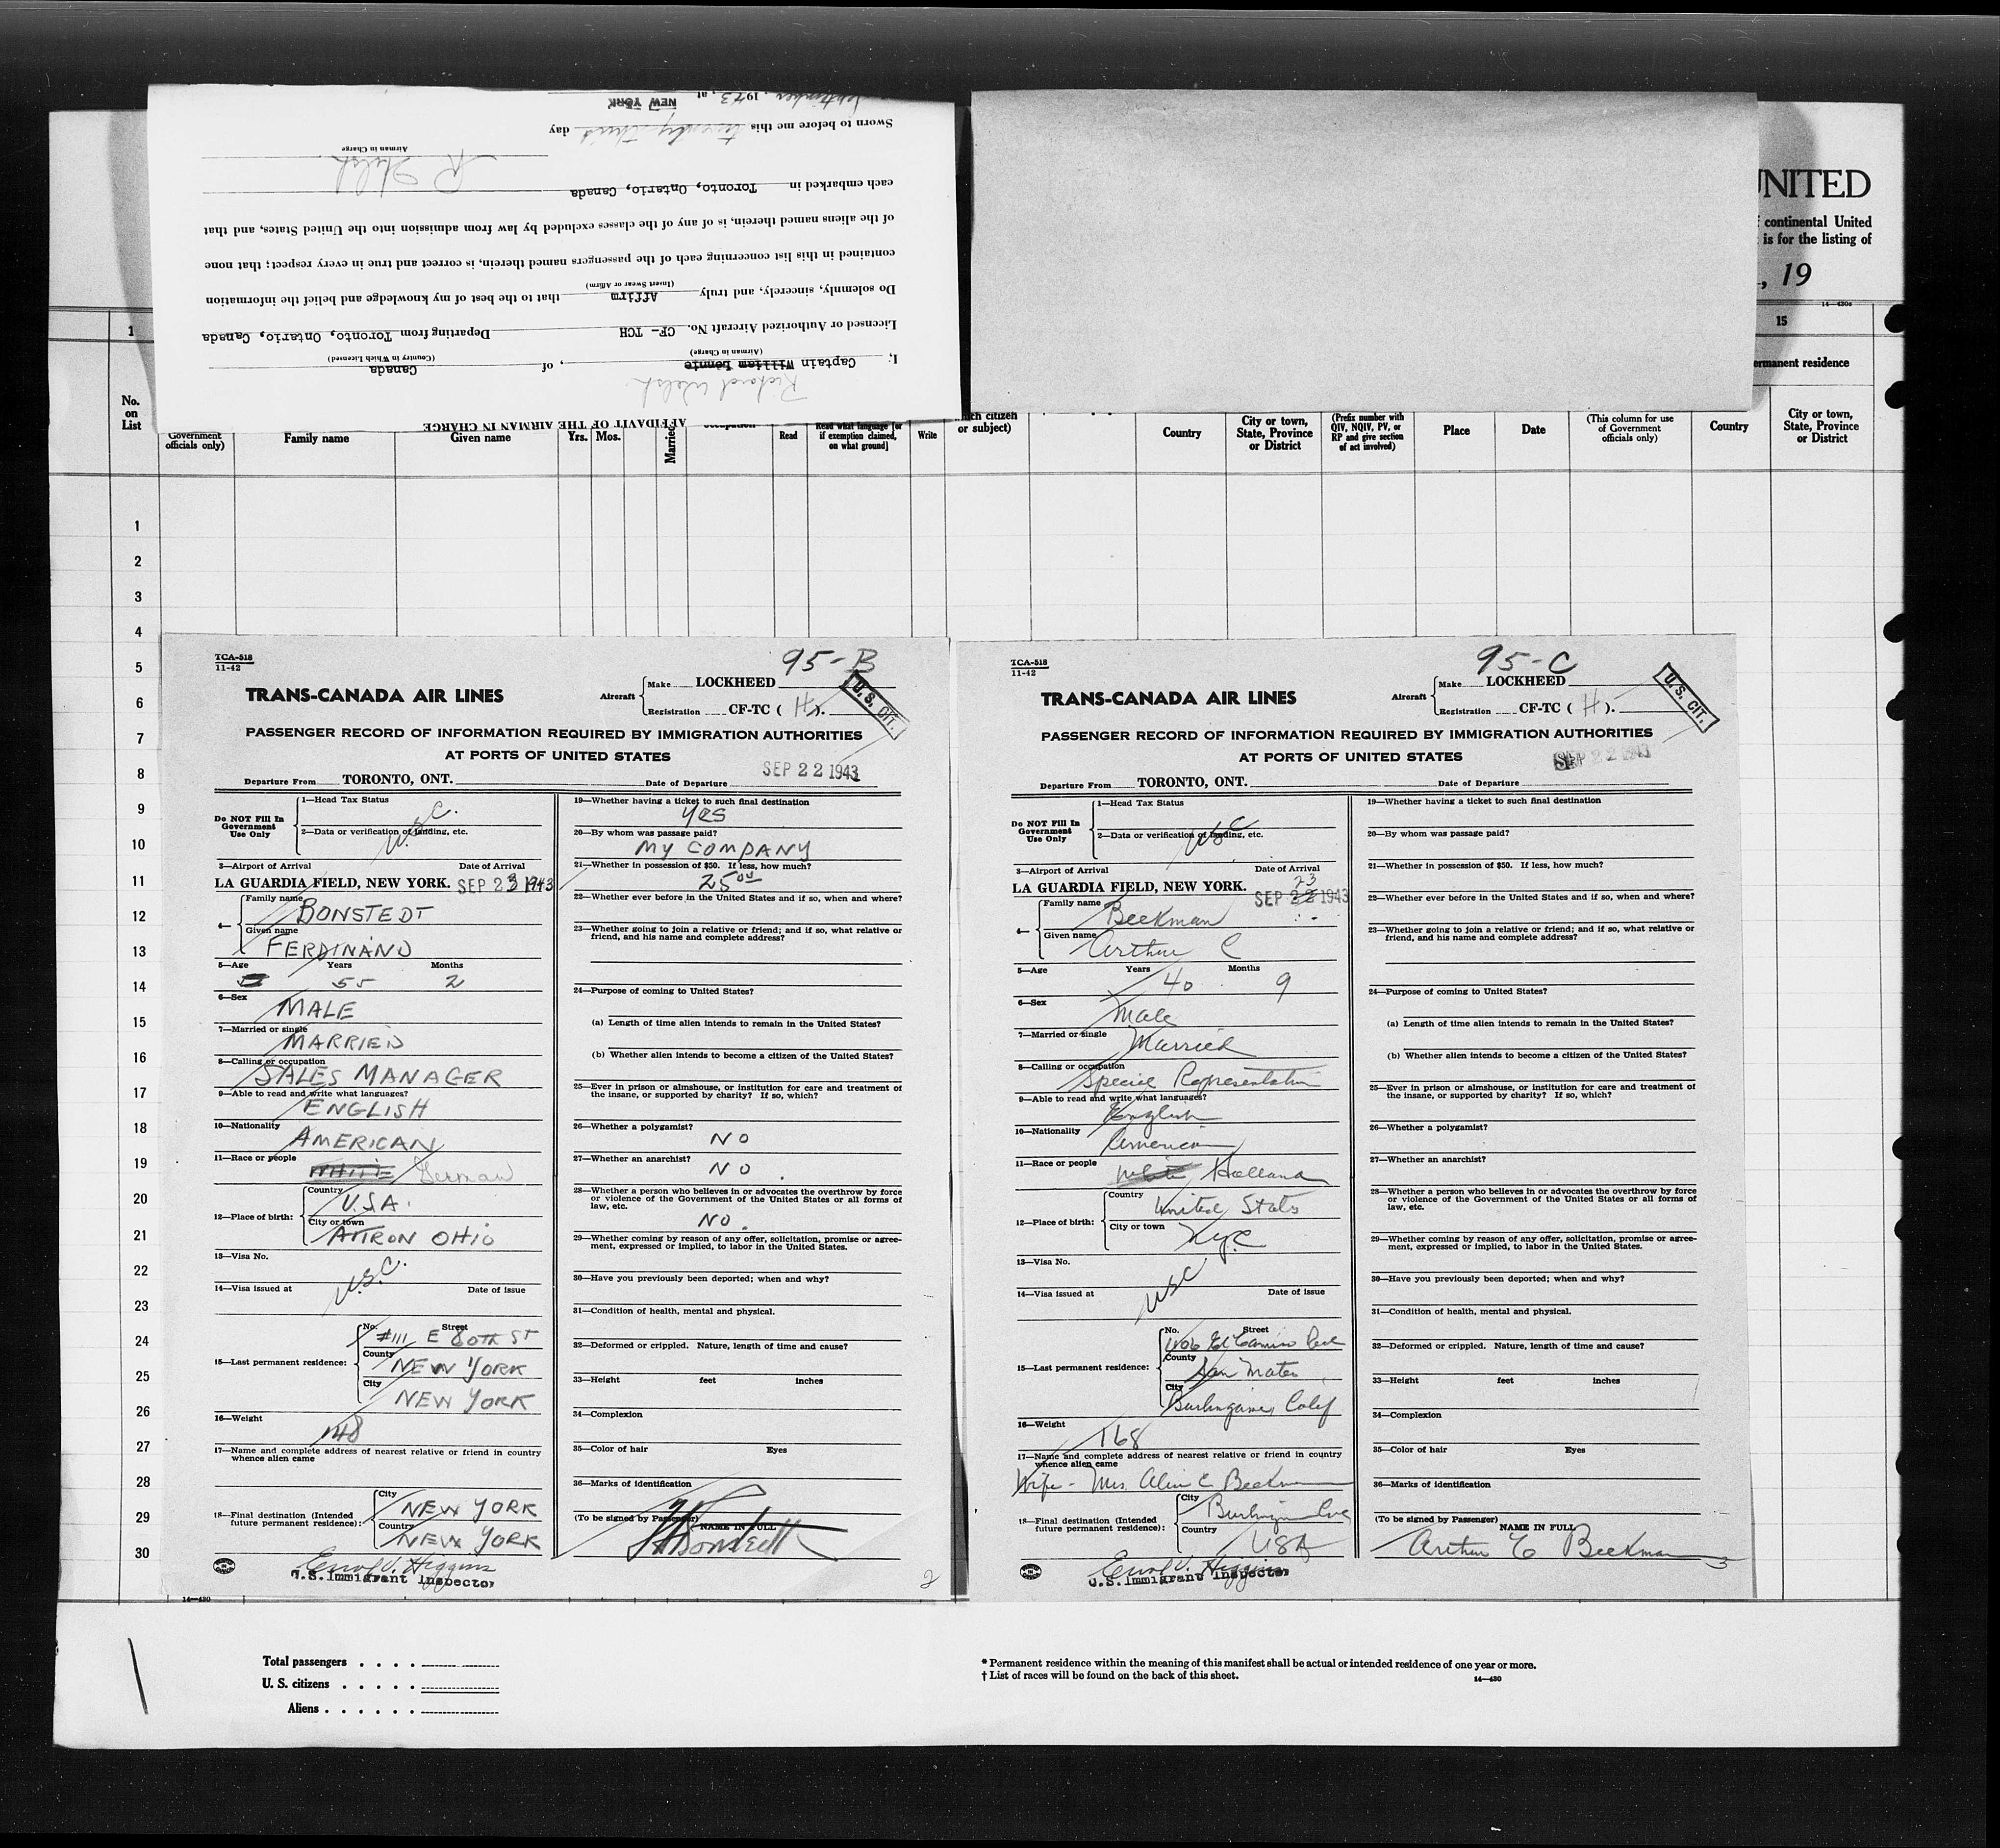 AFFIDAVIT OF THE AIRMAN IN CHARGE
Richard Welsh
I, Captain William Lennie, of Canada
(Airman in Charge) (Country in Which Licensed)
Licensed or Authorized Aircraft No. CF- TCH Departing from Toronto, Ontario, Canada
Do solemnly, sincerely, and truly Affirm that to the best of my knowledge and belief the information
(Insert Swear or Affirm)
contained in this list concerning each of the passengers named therein, is correct and true in every respect; that none
of the aliens named therein, is of any of the classes excluded by law from admission into the United States, and that
each embarked in Toronto, Ontario, Canada
R Welsh
Airman in Charge
Sworn to before me this twenty-third day
September, 1943, at NEW YORK
UNITED
continental United
is for the listing of
, 19
14—430s
1
15
permanent residence
No.
on
List
Government
officials only)
Family name
Given name
Yrs.
Mos.
Married
Read
Read what language [or
if exemption claimed,
on what ground]
Write
which citizen
or subject)
Country
City or town,
State, Province
or District
(Prefix number with
QIV, NQIV, PV, or
RP and give section
of act involved)
Place
Date
(This column for use
of Government
officials only)
Country
City or town,
State, Province
or District
1
2
3
4
5
6
7
8
9
10
11
12
13
14
15
16
17
18
19
20
21
22
23
24
25
26
27
28
29
30
TCA-518
11-42
95-B
TRANS-CANADA AIR LINES
Aircraft
Make LOCKHEED
Registration CF-TC ( H ).
U.S. CIT.
PASSENGER RECORD OF INFORMATION REQUIRED BY IMMIGRATION AUTHORITIES
AT PORTS OF UNITED STATES
Departure From TORONTO, ONT. Date of Departure SEP 22 1943
Do NOT Fill In
Government
Use Only
1—Head Tax Status
2—Data or verification of landing, etc.
U.S.C.
3—Airport of Arrival Date of Arrival
LA GUARDIA FIELD, NEW YORK. SEP 23 1943
4—
Family name
BONSTEDT
Given name
FERDINAND
5—Age Years Months
55 2
6—Sex
MALE
7—Married or single
MARRIED
8—Calling or occupation
SALES MANAGER
9—Able to read and write what languages?
ENGLISH
10—Nationality
AMERICAN
11—Race or people
WHITE German
12—Place of birth:
Country
U.S.A.
City or town
AKRON OHIO
13—Visa No.
U.S.C.
14—Visa issued at Date of issue
15—Last permanent residence:
No. Street
#111 E 80TH ST
County
NEW YORK
City
NEW YORK
16—Weight
148
17—Name and complete address of nearest relative or friend in country
whence alien came
18—Final destination (Intended
future permanent residence):
City
NEW YORK
Country
NEW YORK
Errol V. Higgins
U.S. Immigrant Inspector
19—Whether having a ticket to such final destination
YES
20—By whom was passage paid?
MY COMPANY
21—Whether in possession of $50. If less, how much?
25 00
22—Whether ever before in the United States and if so, when and where?
23—Whether going to join a relative or friend; and if so, what relative or
friend, and his name and complete address?
24—Purpose of coming to United States?
(a) Length of time alien intends to remain in the United States?
(b) Whether alien intends to become a citizen of the United States?
25—Ever in prison or almshouse, or institution for care and treatment of
the insane, or supported by charity? If so, which?
26—Whether a polygamist?
NO
27—Whether an anarchist?
NO
28—Whether a person who believes in or advocates the overthrow by force
or violence of the Government of the United States or all forms of
law, etc.
NO.
29—Whether coming by reason of any offer, solicitation, promise or agree-
ment, expressed or implied, to labor in the United States.
30—Have you previously been deported; when and why?
31—Condition of health, mental and physical.
32—Deformed or crippled. Nature, length of time and cause?
33—Height feet inches
34—Complexion
35—Color of hair Eyes
36—Marks of identification
(To be signed by Passenger) NAME IN FULL
F Bonstedt
2
TCA-518
11-42
95-C
TRANS-CANADA AIR LINES
Aircraft
Make LOCKHEED
Registration CF-TC ( H ).
U.S. CIT.
PASSENGER RECORD OF INFORMATION REQUIRED BY IMMIGRATION AUTHORITIES
AT PORTS OF UNITED STATES
SEP 22 1943
Departure From TORONTO, ONT. Date of Departure
Do NOT Fill In
Government
Use Only
1—Head Tax Status
2—Data or verification of landing, etc.
USC
3—Airport of Arrival Date of Arrival
23
LA GUARDIA FIELD, NEW YORK. SEP 22 1943
4—
Family name
Beekman
Given name
Arthur C
5—Age Years Months
40 9
6—Sex
Male
7—Married or single
Married
8—Calling or occupation
Special Representative
9—Able to read and write what languages?
English
10—Nationality
American
11—Race or people
White Holland
12—Place of birth:
Country
United States
City or town
NYC
13—Visa No.
USC
14—Visa issued at Date of issue
15—Last permanent residence:
No. Street
1106 El Camino Real
County
San Mateo
City
Burlingame, Calif
16—Weight
168
17—Name and complete address of nearest relative or friend in country
whence alien came
Wife - Mrs. C Beekman
18—Final destination (Intended
future permanent residence):
City
Country
USA
Errol V. Higgins
U.S. Immigrant Inspector
19—Whether having a ticket to such final destination
20—By whom was passage paid?
21—Whether in possession of $50. If less, how much?
22—Whether ever before in the United States and if so, when and where?
23—Whether going to join a relative or friend; and if so, what relative or
friend, and his name and complete address?
24—Purpose of coming to United States?
(a) Length of time alien intends to remain in the United States?
(b) Whether alien intends to become a citizen of the United States?
25—Ever in prison or almshouse, or institution for care and treatment of
the insane, or supported by charity? If so, which?
26—Whether a polygamist?
27—Whether an anarchist?
28—Whether a person who believes in or advocates the overthrow by force
or violence of the Government of the United States or all forms of
law, etc.
29—Whether coming by reason of any offer, solicitation, promise or agree-
ment, expressed or implied, to labor in the United States.
30—Have you previously been deported; when and why?
31—Condition of health, mental and physical.
32—Deformed or crippled. Nature, length of time and cause?
33—Height feet inches
34—Complexion
35—Color of hair Eyes
36—Marks of identification
(To be signed by Passenger) NAME IN FULL
Arthur C Beekman
3
14—430
Total passengers
U. S. citizens
Aliens
* Permanent residence within the meaning of this manifest shall be actual or intended residence of one year or more.
† List of races will be found on the back of this sheet.
14—430